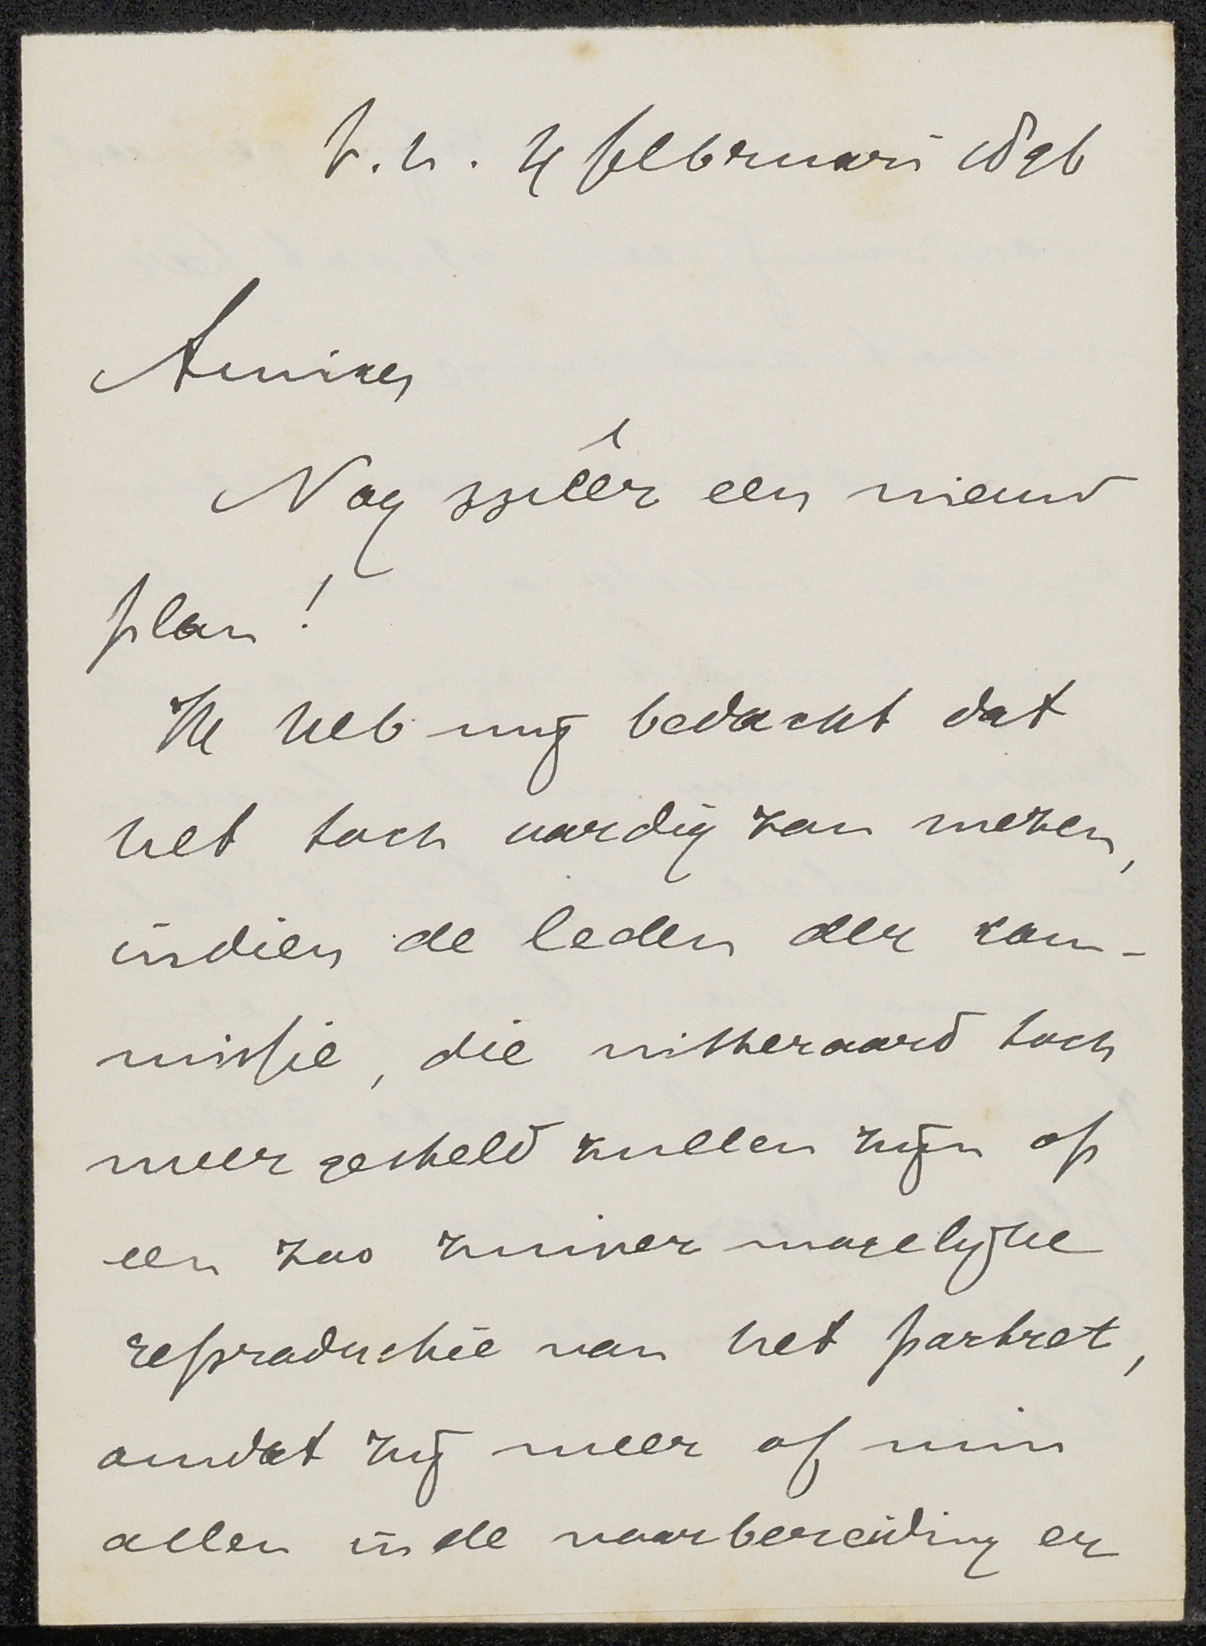 t. h. 4 februari 1896
Amice,
Nog wéêr een nieuw
plan!
Ik heb mij bedacht dat
het toch aardig zou wezen,
indien de leden der com-
missie, die uitteraard toch
meer gesteld zullen zijn op
een zoo zuiver mogelijke
reproductie van het portret,
omdat zij meer of min
allen in de voorbereiding er